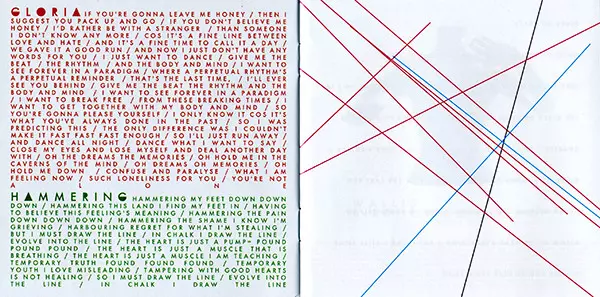 GLORIA IF YOU'RE GONNA LEAVE ME HONEY / THEN I
SUGGEST YOU PACK UP AND GO / IF YOU DON'T BELIEVE ME
HONEY / I'D RATHER BE WITH A STRANGER / THAN SOMEONE
I DON'T KNOW ANY MORE / COS IT'S A FINE LINE BETWEEN
LOVE AND HATE / AND IT'S A FINE TIME TO CALL IT A DAY /
WE GAVE IT A GOOD RUN / AND NOW I JUST DON'T HAVE ANY
WORDS FOR YOU / I JUST WANT TO DANCE / GIVE ME THE
BEAT / THE RHYTHM / AND THE BODY AND MIND / I WANT TO
SEE FOREVER IN A PARADIGM / WHERE A PERPETUAL RHYTHM'S
A PERPETUAL REMINDER / THAT'S THE LAST TIME, / I'LL EVER
SEE YOU BEHIND / GIVE ME THE BEAT THE RHYTHM AND THE
BODY AND MIND / I WANT TO SEE FOREVER IN A PARADIGM
/ I WANT TO BREAK FREE / FROM THESE BREAKING TIMES / I
WANT TO GET TOGETHER WITH MY BODY AND MIND / SO
YOU'RE GONNA PLEASE YOURSELF / I ONLY KNOW IT COS IT'S
WHAT YOU'VE ALWAYS DONE IN THE PAST / SO I WAS
PREDICTING THIS / THE ONLY DIFFERENCE WAS I COULDN'T
MAKE IT FAST FAST ENOUGH / SO I'LL JUST RUN AWAY /
AND DANCE ALL NIGHT / DANCE WHAT I WANT TO SAY /
CLOSE MY EYES AND LOSE MYSELF AND DEAL ANOTHER DAY
WITH / OH THE DREAMS THE MEMORIES / OH HOLD ME IN THE
CAVERNS OF THE MIND / OH DREAMS OH MEMORIES / OH
HOLD ME DOWN / CONFUSE AND PARALYSE / WHAT I AM
FEELING NOW / SUCH LONELINESS FOR YOU / YOU'RE NOT
A L O N E
HAMMERING HAMMERING MY FEET DOWN DOWN
DOWN / HAMMERING THIS LAND I FIND MY FEET IN / HAVING
TO BELIEVE THIS FEELING'S MEANING / HAMMERING THE PAIN
DOWN DOWN DOWN / HAMMERING THE SHAME I KNOW I'M
GRIEVING / HARBOURING REGRET FOR WHAT I'M STEALING /
BUT I MUST DRAW THE LINE / IN CHALK I DRAW THE LINE /
EVOLVE INTO THE LINE / THE HEART IS JUST A PUMP~ POUND
POUND POUND / THE HEART IS JUST A MUSCLE THAT IS
BREATHING / THE HEART IS JUST A MUSCLE I AM TEACHING /
TEMPORARY TRUTH FOUND FOUND FOUND / TEMPORARY
YOUTH I LOVE MISLEADING / TAMPERING WITH GOOD HEARTS
IS NOT HEALING / SO I MUST DRAW THE LINE / EVOLVE INTO
THE LINE / IN CHALK I DRAW THE LINE